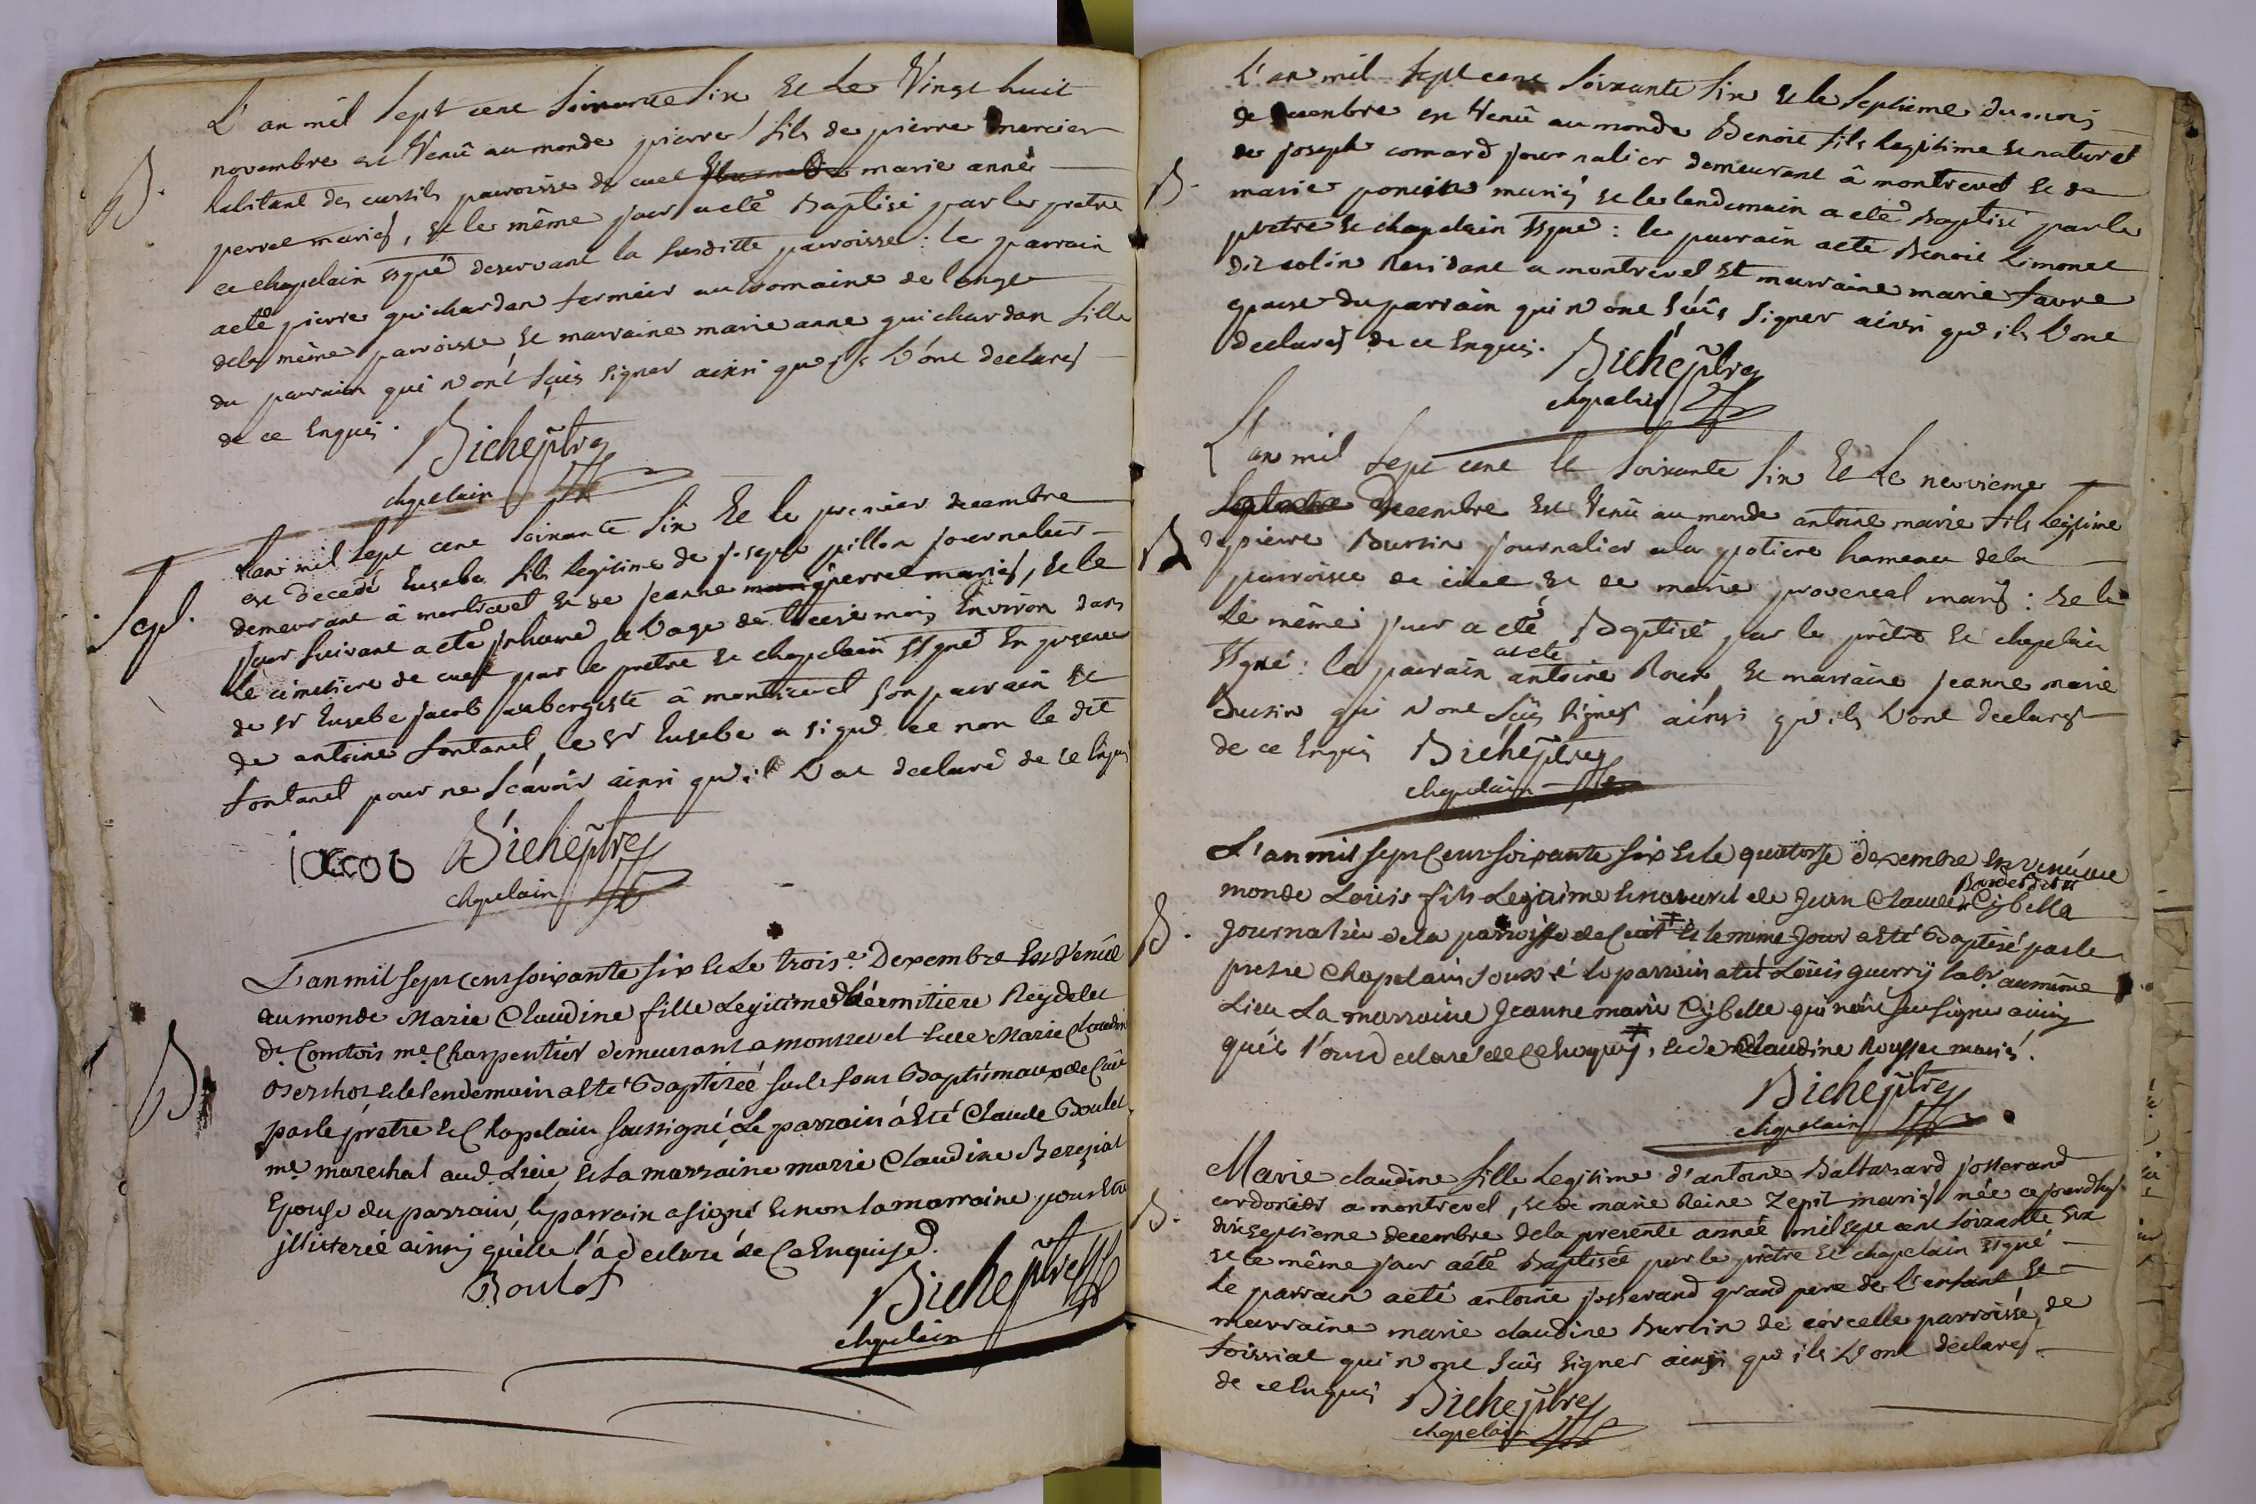 L'an mil sept cent soixante six et le vingt huit
B.
novembre est venû au monde pierre fils de pierre mercier
habitant des cursils parroisse de cuet marie anne
perret mariés, et le même jour a eté Baptisé par le pretre
et chapelain ssgné deservant la susditte parroisse : le parrain
a eté pierre guichardan fermier au domaine de longe
dela même parroisse et marraine marie anne guichardan fille
du parrain qui n'ont sçûs signer ainsi qu'ils l'ont declarés
de ce enquis.
Biche ptre
chapelain
L'an mil sept cent soixante six et le premier decembre
Sepl.
est decedé Eusebe fils legitime de joseph pillon journalier
demeurant â montrevel et de jeanne perret mariés, et le
jour suivant a eté inhumé a l'age de treise mois environ dans
le cimetiere de cuet par le pretre et chapelain ssgné en presence
de sr Eusebe jacob aubergiste â montrevel son parrain et
de antoine fontanel, le sr Eusebe a signé et non le dit
fontanel pour ne sçavoir ainsi qu'il l'at declaré de ce enquis
iaccob Biche ptre
chapelain
L'an mil sept cent soixante six et le trois.e Dexembre Est Venüe
au monde Marie Claudine fille Legitime d'hermitiere Reydelet
B.
dt Comtois me Charpentier demeurant a montrevel et de Marie Claudine
Berthot et le lendemain a Eté Baptiseé sur le fons Baptismaux de Cuet
par le prêtre et Chapelain soussigné, Le parrain á Eté Claude Boulet
me marechal aud. Lieu, et La marraine marie Claudine Bereziat
Epouse du parrain, le parrain a signé et non la marraine pour être
jllitereé ainsy qu'elle l'á declaré de Ce Enquise.
Boulot
Biche ptre
chapelain
L'an mil sept cent soixante six et le septieme du mois
de decembre est venû au monde Benoit fils legitime et naturel
B.
de joseph comard journalier demeurant â montrevel et de
marie poncin mariés et le lendemain a eté Baptisé par le
pretre et chapelain ssgné : le parrain a eté Benoit Limonet
dit colin Residant a montrevel et marraine marie favre
epouse du parrain qui n'ont sçûs signer ainsi qu'ils l'ont
declarés de ce enquis. Biche ptre
chapelain
L'an mil sept cent et soixante six et le neuvieme
decembre est venû au monde antoine marie fils legitime
B
de pierre Burtin journalier a la potiere hameau dela
parroisse de cuet et de marie provencal mariés : et le
Le même jour a eté Baptisé par le prêtre et chapelain
a eté
ssgné : le parrain antoine Roux et marraine jeanne marie
Burtin qui n'ont sçûs signer ainsi qu'ils l'ont declarés
de ce enquis Biche ptre
chapelain
L'an mil sept Cent soixante six et le quatorse dexembre est venú au
monde Loüis fils Legitime et naturel de Jean Claude Cybelle
B.
Journalier de la parroisse de Cuet et le mème Jour a Eté Baptisé par le
pretre Chapelain Souss é le parrain a eté Loüis guerry labr au même
Lieu La marraine Jeanne marie Cybelle qui n'ont sçu signer ainsy
qu'ils l'ont declaré de Ce Enquis, et de Claudine Rousset mariés.
Biche ptre
chapelain
Marie claudine fille legitime d'antoine Baltassard josserand
cordonier a montrevel, et de marie Reine Zepit mariés née ce jourdhuy
B.
dix septieme decembre dela presente année mil sept cent soixante six
et le même jour a eté Baptisée par le prêtre et chapelain ssgné
Le parrain a eté antoine josserand grand pere de l'enfant et
marraine marie claudine Burtin de corcelle parroisse de
foissiat qui n'ont sçûs signer ainsi qu'ils l'ont declarés
de ce enquis Biche ptre
chapelain